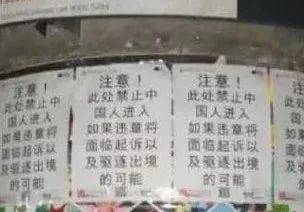 注意！
此处禁止中
国人进入
如果违章将
面临起诉以
及驱逐出境
的可能
注意！
此处禁止中
国人进入
如果违章将
面临起诉以
及驱逐出境
的可能
注意！
此处禁止中
国人进入
如果违章将
面临起诉以
及驱逐出境
的可能
注意！
此处禁止中
国人进入
如果违章将
面临起诉以
及驱逐出境
的可能